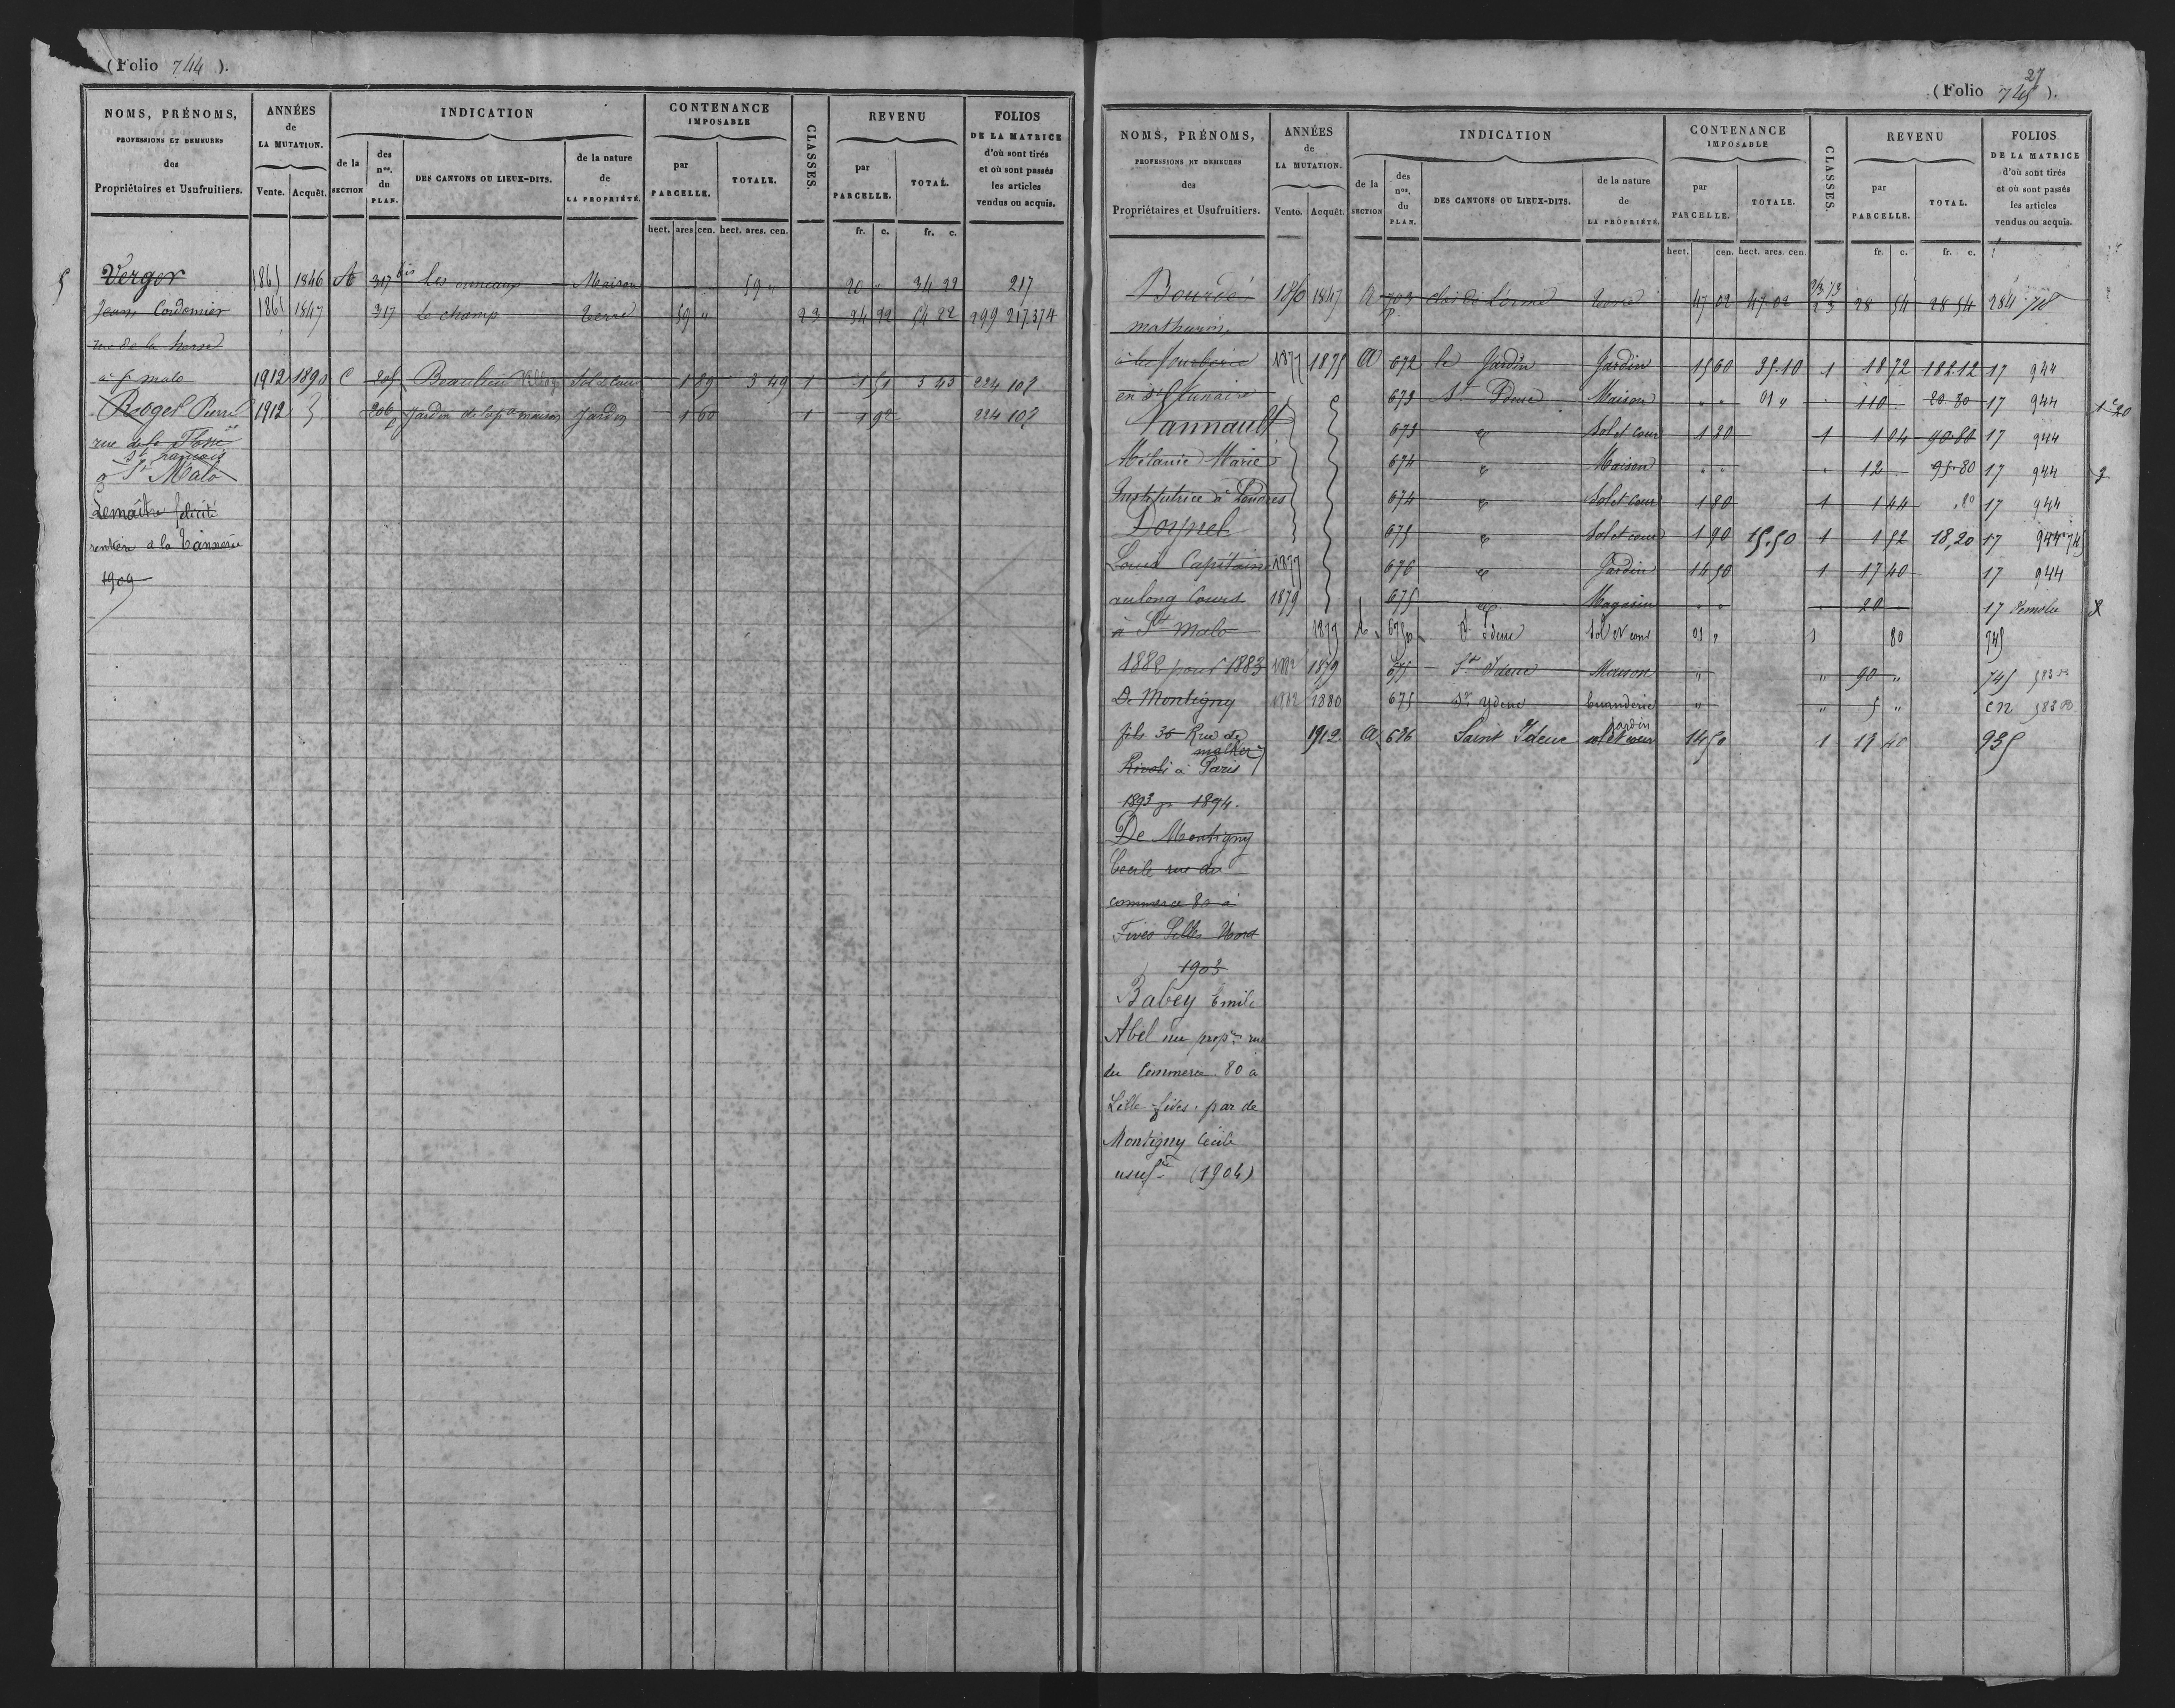 (Folio 744 ).
NOMS, PRÉNOMS,
PROFESSIONS ET DEMEURES
des
Propriétaires et Usufruitiers.
ANNÉES
de
LA MUTATION.
Vente. Acquêt.
INDICATION
de la
SECTION
des
nos.
du
PLAN.
DES CANTONS OU LIEUX-DITS.
de la nature
de
LA PROPRIÉTÉ.
CONTENANCE
IMPOSABLE
par
PARCELLE.
TOTALE.
CLASSES.
REVENU
par
PARCELLE.
TOTAL.
FOLIOS
DE LA MATRICE
d'où sont tirés
et où sont passés
les articles
vendus ou acquis.
hect. ares cen. hect. ares. cen. fr. c. fr. c.
Verger 1865 1846 A 317 bis Les ormeaux Maison 59 " 20 " 34 22 217
Jeune Cordonnier 1865 1847 317 Le champ Terre 59 " 23 34 22 54 22 299 217 374
rue de la herse
à St malo 1912 1890 C 205 Beaulieu Sol et cour 1 89 3 49 1 1 51 3 43 224 107
Roger Pierre 1912 206 p Jardin de la pte maison Jardin 1 60 1 1 92 224 107
rue de la Fosse
St Malo
Lemaître félicité
rentière à la Tannerie
1909
(Folio 745 ).
27
NOMS, PRÉNOMS,
PROFESSIONS ET DEMEURES
des
Propriétaires et Usufruitiers.
ANNÉES
de
LA MUTATION.
Vente. Acquêt.
INDICATION
de la
SECTION
des
nos.
du
PLAN.
DES CANTONS OU LIEUX-DITS.
de la nature
de
LA PROPRIÉTÉ.
CONTENANCE
IMPOSABLE
par
PARCELLE.
TOTALE.
CLASSES.
REVENU
par
PARCELLE.
TOTAL.
FOLIOS
DE LA MATRICE
d'où sont tirés
et où sont passés
les articles
vendus ou acquis.
hect. cen. hect. ares. cen. fr. c. fr. c.
Bourdé 1870 1847 703 p clos de Lorme terre 47 02 47 02 23 28 54 28 54 284 718
mathurin,
1877 1875 A 672 le Jardin Jardin 15 60 35.10 1 18 72 182.12 17 944
en St Lunaire 673 St Ideuc Maison " " 01 " 110 20 80 17 944
Jannault 673 Sol et cour 1 80 1 1 04 90 80 17 944
Mélanie Marie 674 Maison " " 12 95.80 17 944
Institutrice à Londres 674 Sol et cour 1 80 1 1 44 80 17 944
675 Sol et cour 1 90 15.50 1 1 52 18,20 17 944 745
Louis Capitaine 1877 676 Jardin 14 50 1 17 40 17 944
au long cours 1879 675 Magasin " " 20 17 démolie
à St Malo 1877 A 675 p St Ideuc Sol et cour 01 " 1 80 745
1882 pour 1883 1882 1879 675 St Ideuc Maison " " 90 " 745 583
De Montigny 1882 1880 675 St Ydeuc buanderie " " 5 " CN 583
fils 36 Rue de 1912 A 676 Saint Ideuc sol et cour Jardin 14 50 1 17 40 935
malher
Rivoli à Paris
1893 pr 1894.
De Montigny
Cécile rue du
commerce 80 à
Fives Lille Nord
1903
Babey Emile
Abel nu propre rue
du Commerce 80 à
Lille-fives. par de
Montigny Cécile
usufre (1904)